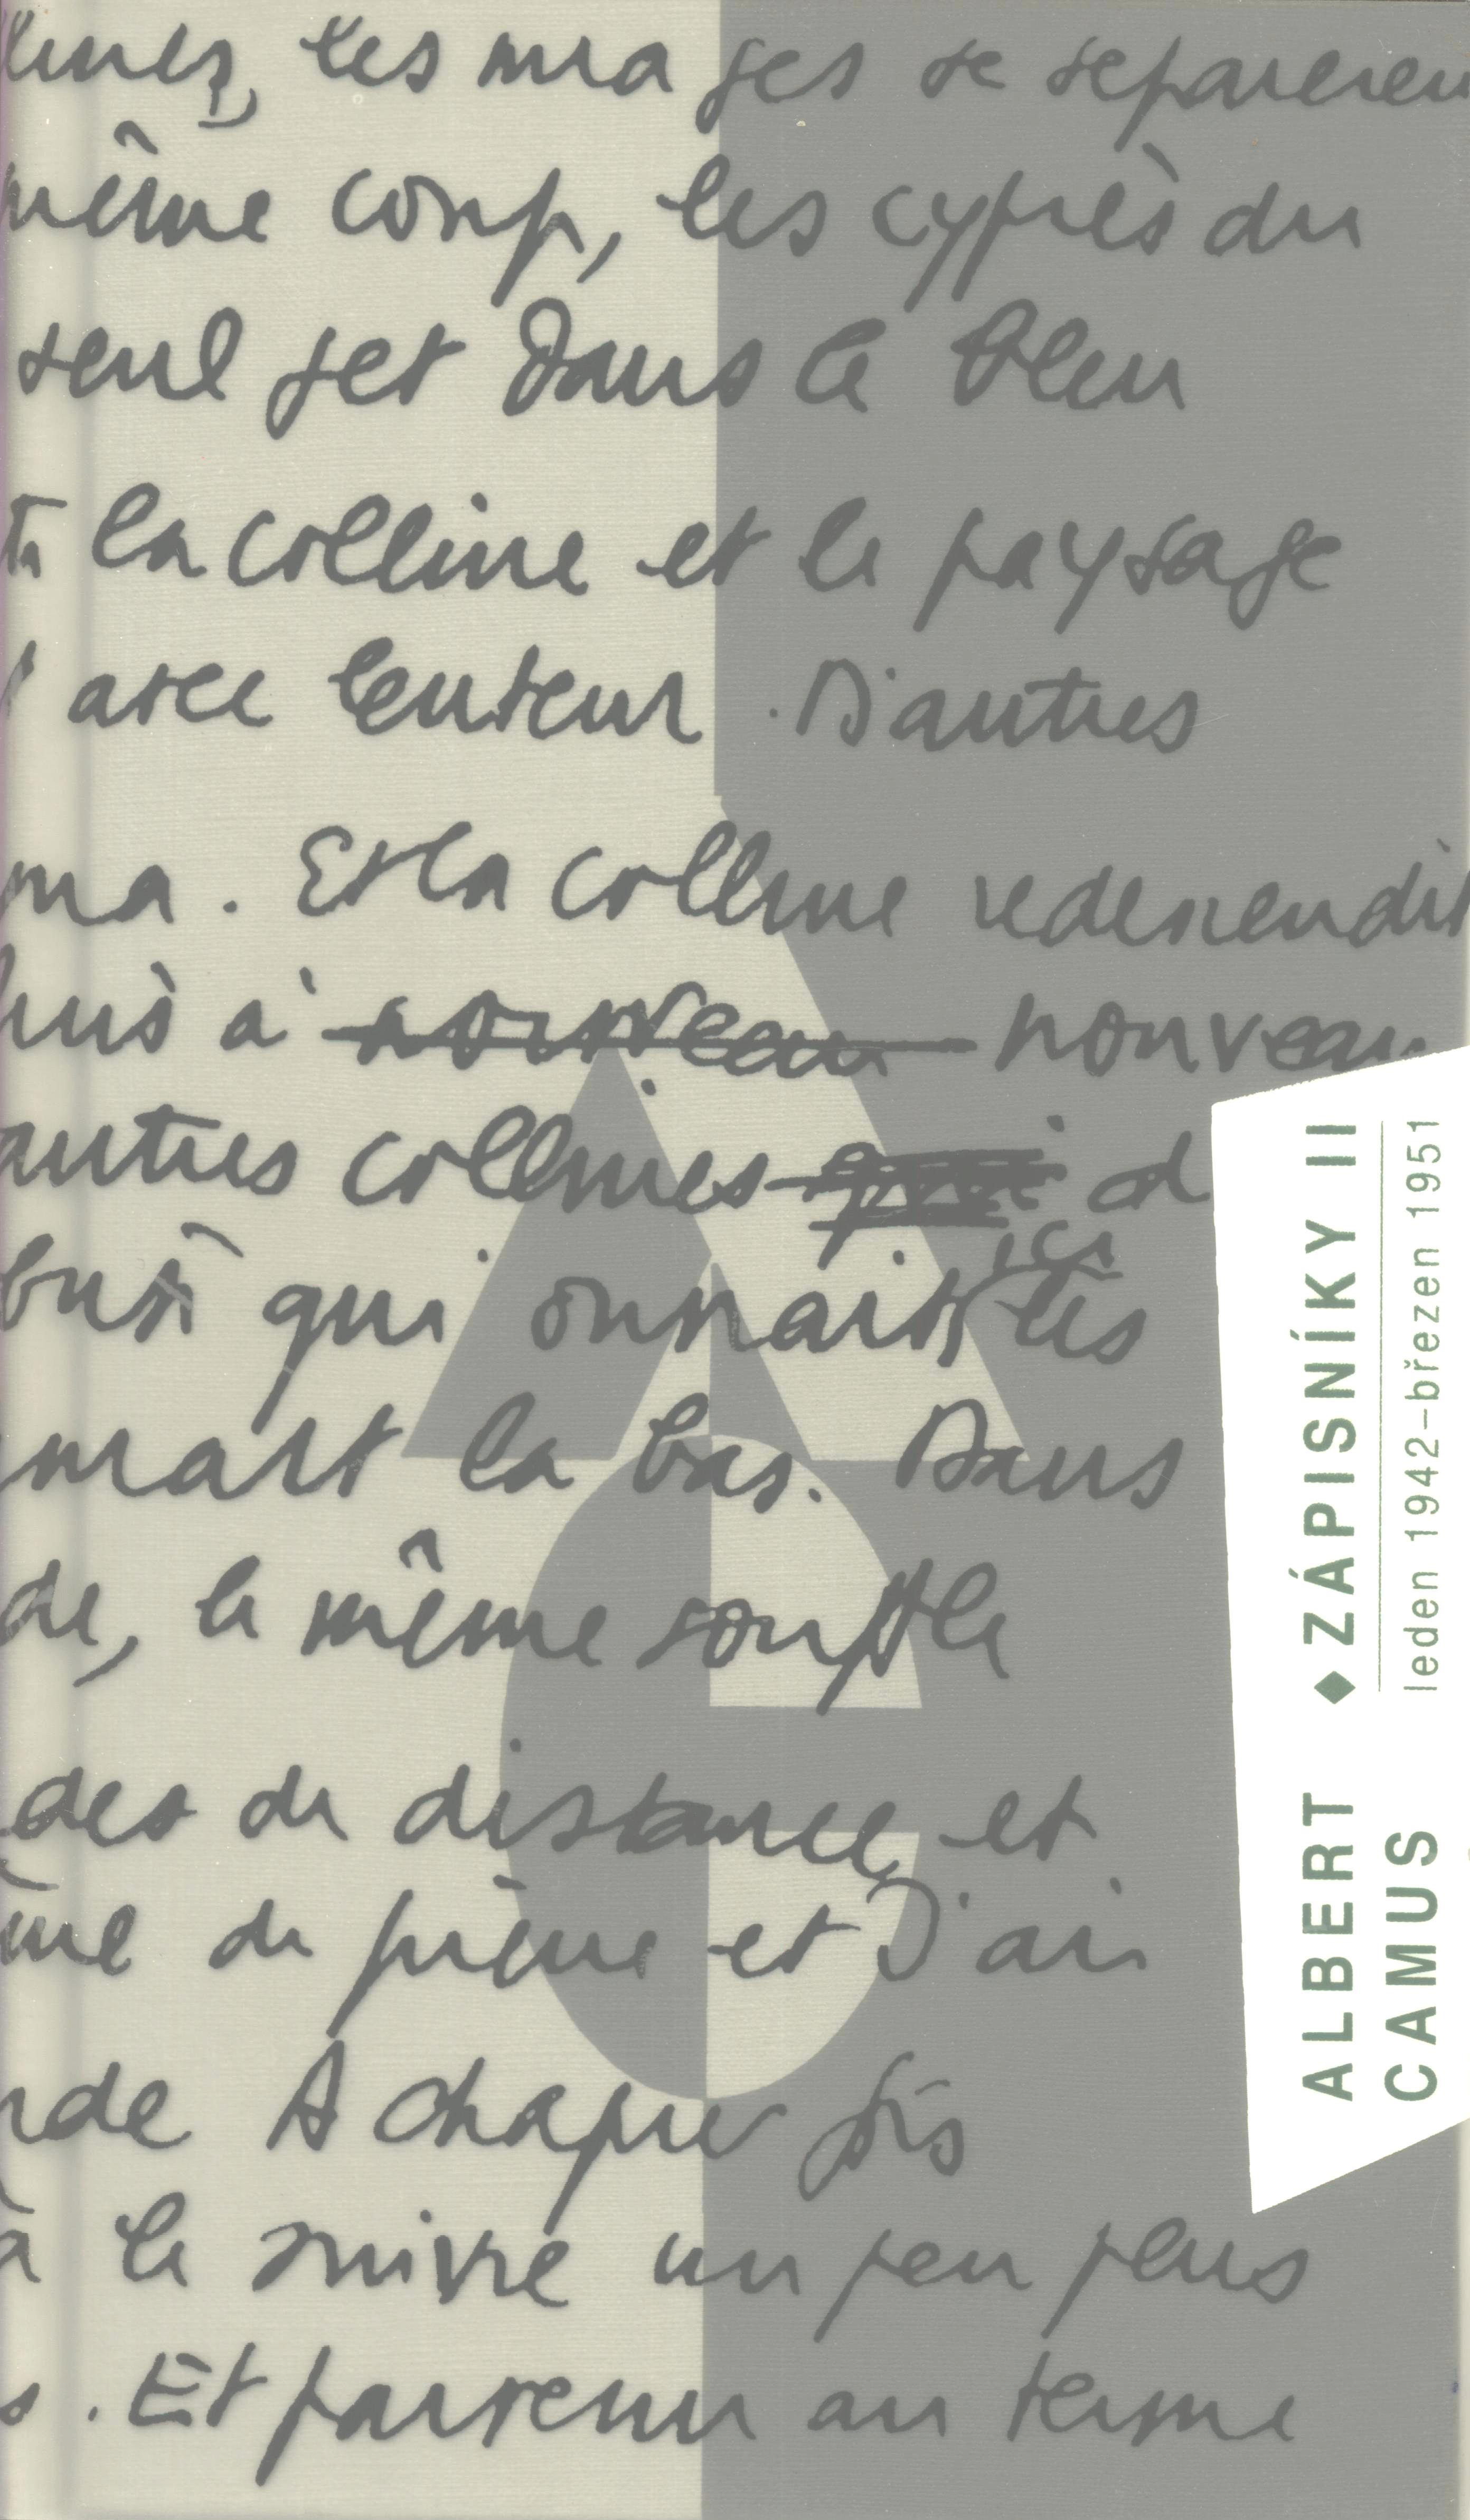 les nuages se separeren
même coup, les cyprès du
seul jet dans le bleu
la colline et le paysage
avec lenteur. D'autres
. Et la colline redescendit
à nouveau nouveau
autres collines qui d
ici
qui les
la bas. Dans
de, le même souffle
des de distance et
de et J'ai
A chaque fois
à le suivre un peu plus
. Et parvenu au terme
ALBERT ◆ ZÁPISNÍKY II
CAMUS leden 1942–březen 1951